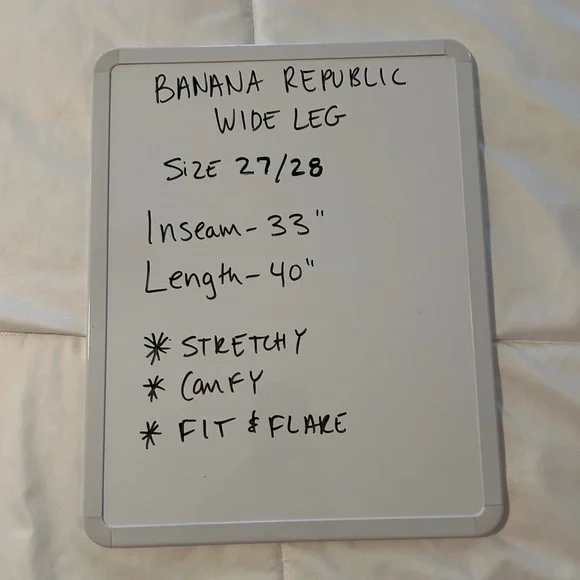 BANANA REPUBLIC
WIDE LEG
SiZE 27/28
Inseam - 33"
Length - 40"
* STRETCHY
* ComFY
* FIT & FLARE